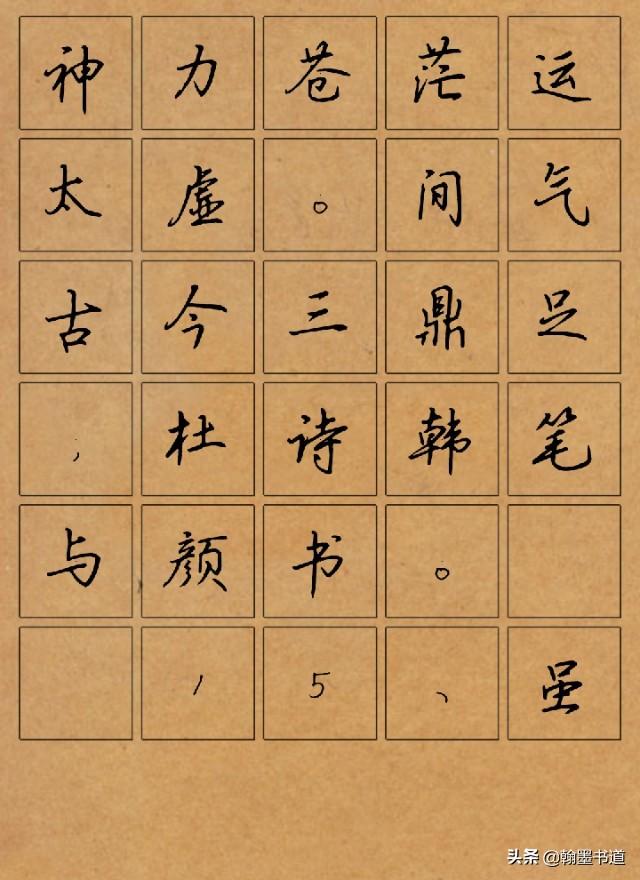 神力苍茫运
太虚。间气
古今三鼎足
，杜诗韩笔
与颜书。
15、虽
头条 @翰墨书道